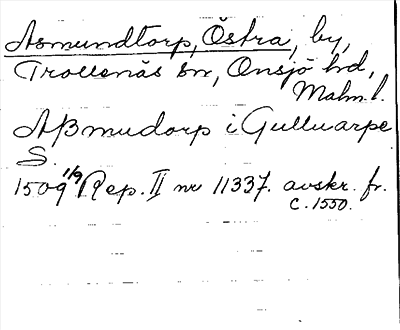 Asmundtorp, Östra, by,
Trollenäs sn, Onsjö hd,
Malm. l.
Aßmudorp i Gulluarpe
S.
1509 1/9 Rep. II nr 11337. avskr. fr.
c. 1550.